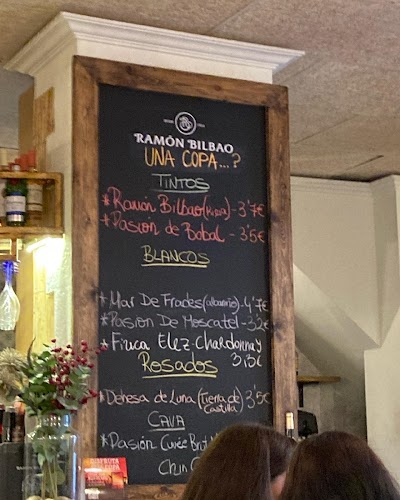 RAMÓN BILBAO
UNA COPA...?
TINTOS
*Ramón Bilbao(Rioja)-3'7€
*Pasión de Bobal - 3'5€
BLANCOS
*Mar De Frades(albariño)-4'7€
*Pasion De Moscatel-3'2€
*Finca Elez-Chardonnay
3'3€
ROSADOS
*Dehesa de Luna(Tierra de Castilla) 3'5€
CAVA
*Pasión Cuvée Brut
Chin